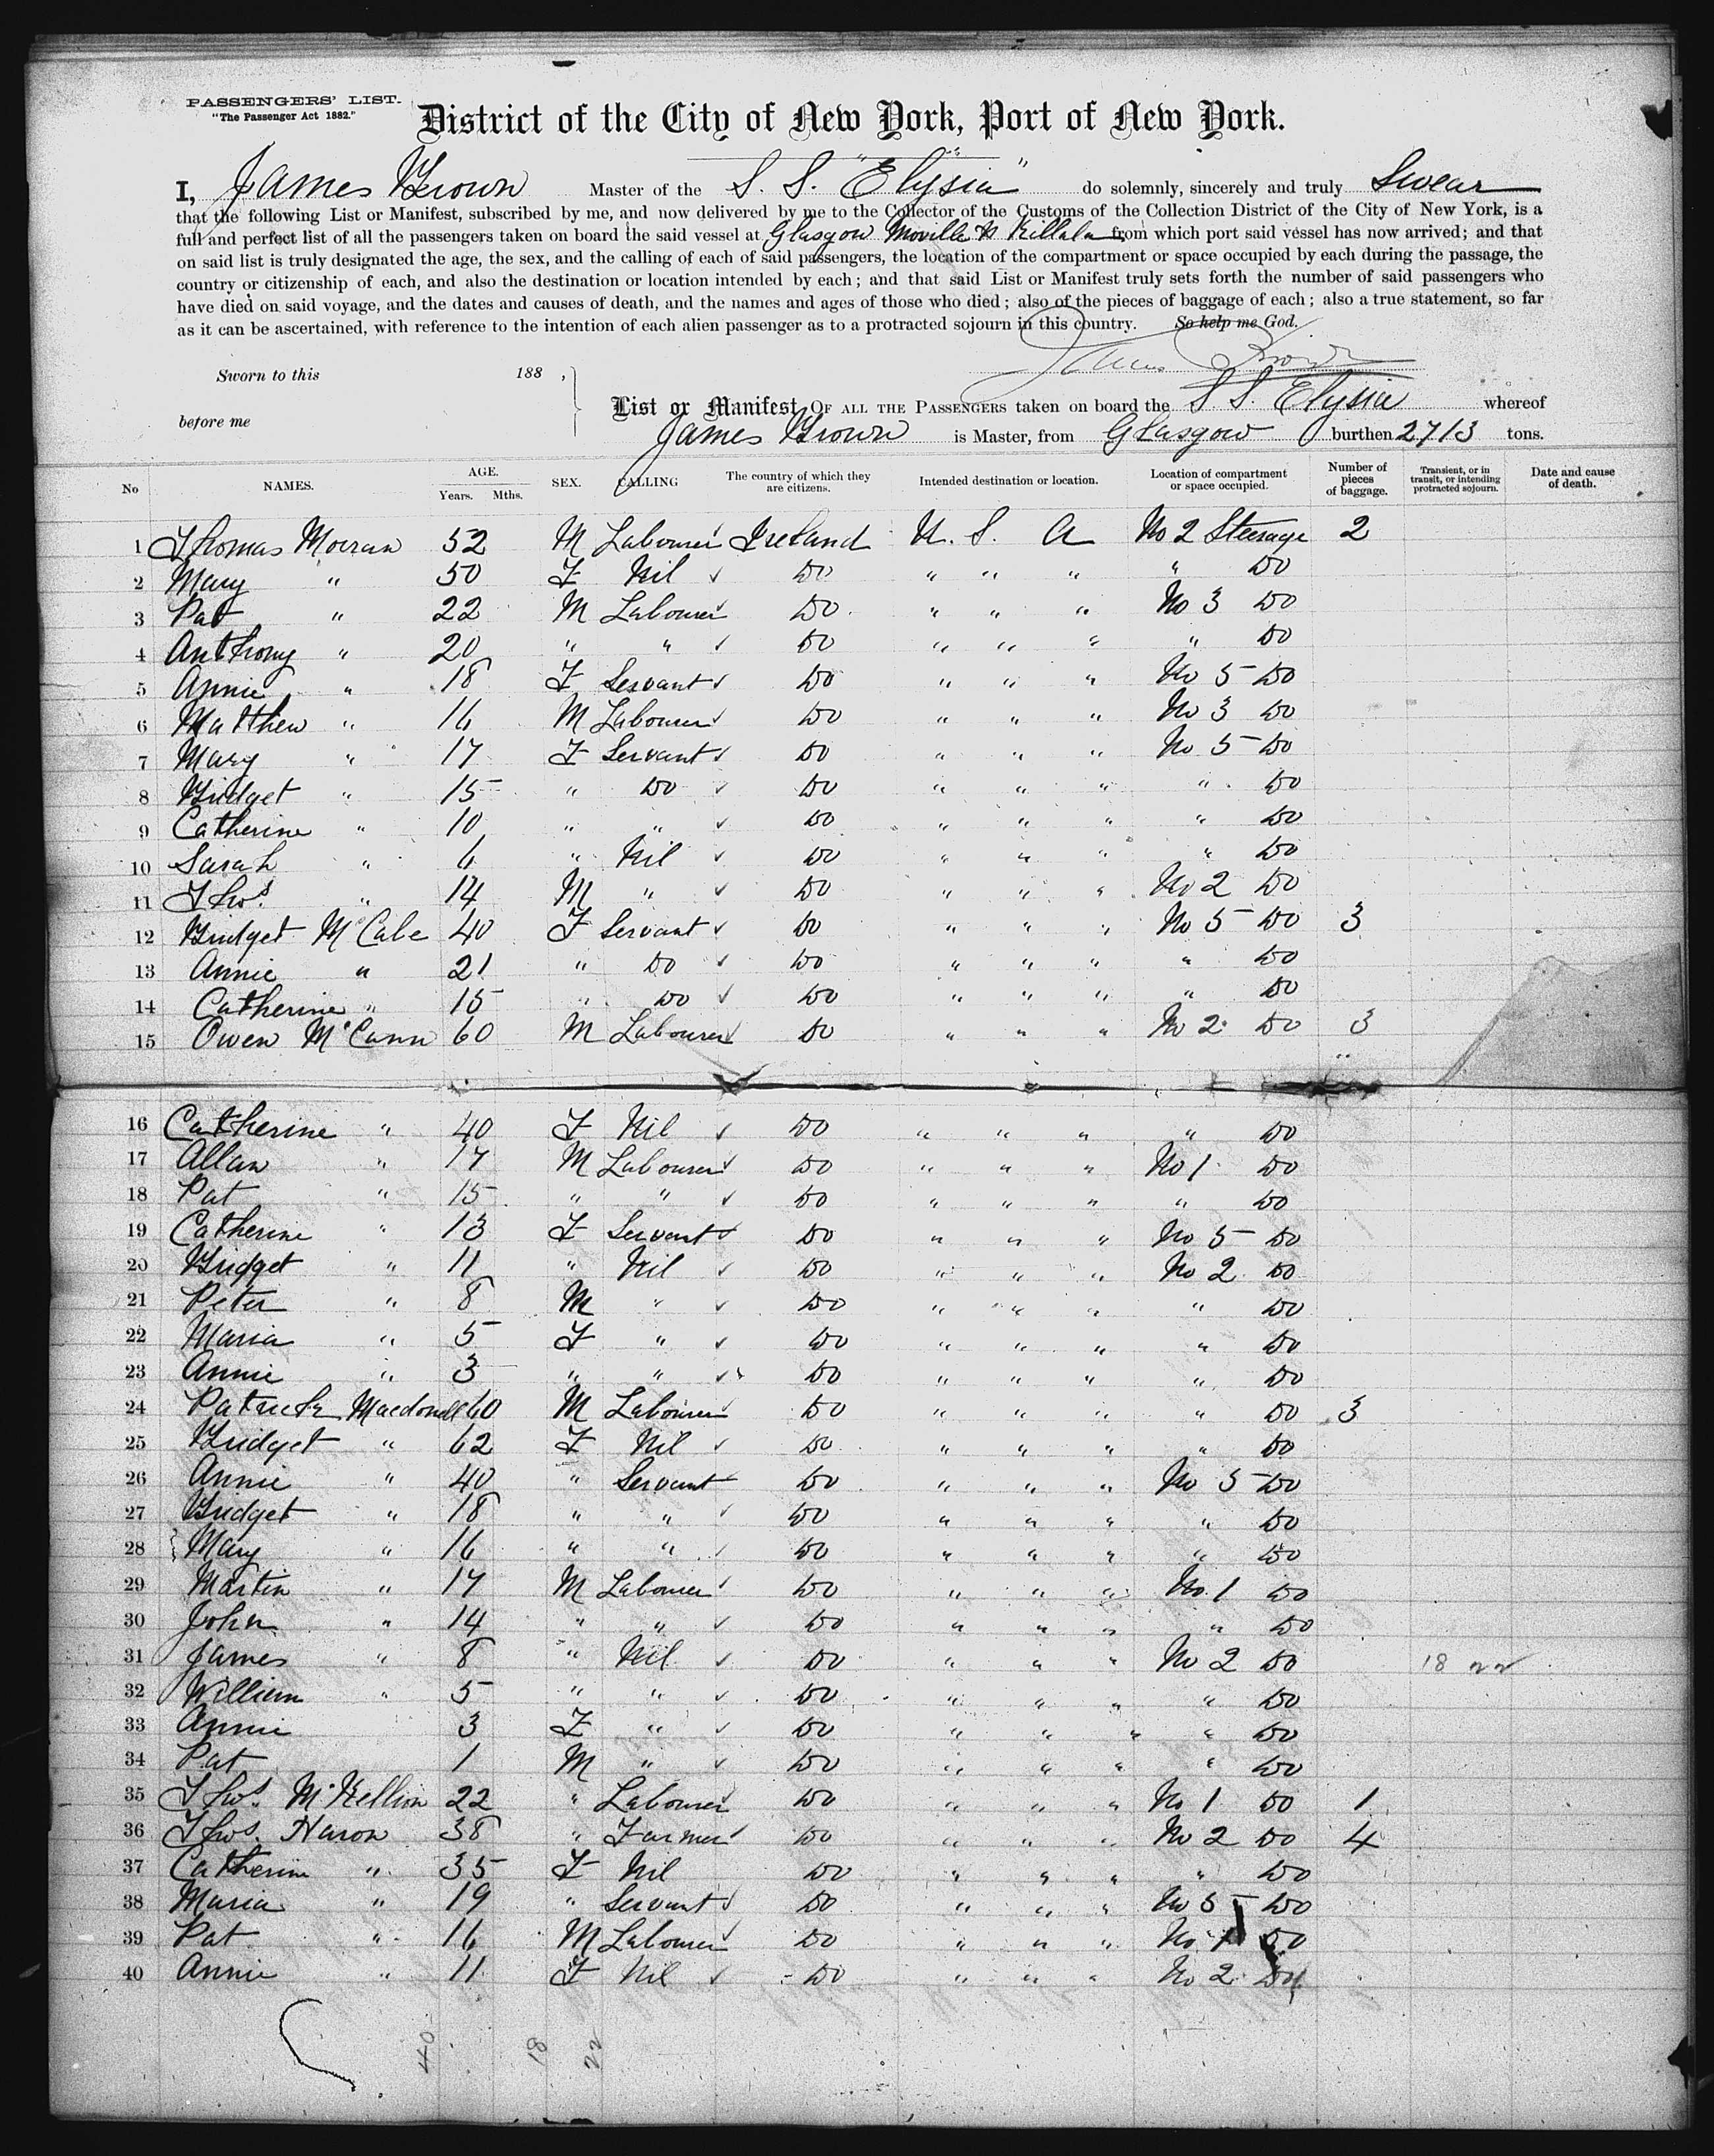 PASSENGERS' LIST.
"The Passenger Act 1882."
District of the City of New York, Port of New York.
I, James Brown Master of the S. S. "Elysia" do solemnly, sincerely and truly Swear
that the following List or Manifest, subscribed by me, and now delivered by me to the Collector of the Customs of the Collection District of the City of New York, is a
full and perfect list of all the passengers taken on board the said vessel at Glasgow Moville & Killala from which port said vessel has now arrived; and that
on said list is truly designated the age, the sex, and the calling of each of said passengers, the location of the compartment or space occupied by each during the passage, the
country or citizenship of each, and also the destination or location intended by each; and that said List or Manifest truly sets forth the number of said passengers who
have died on said voyage, and the dates and causes of death, and the names and ages of those who died; also of the pieces of baggage of each; also a true statement, so far
as it can be ascertained, with reference to the intention of each alien passenger as to a protracted sojourn in this country. So help me God.
James Brown
Sworn to this 188 ,
before me
List or Manifest OF ALL THE PASSENGERS taken on board the S S. Elysia whereof
James Brown is Master, from Glasgow burthen 2713 tons.
No NAMES. AGE. Years. Mths. SEX. CALLING The country of which they are citizens. Intended destination or location. Location of compartment or space occupied. Number of pieces of baggage. Transient, or in transit, or intending protracted sojourn. Date and cause of death.
1 Thomas Moran 52 M Labourer Ireland U. S. A No 2 Steerage 2
2 Mary " 50 F Nil Do " " " " Do
3 Pat " 22 M Labourer Do " " " No 3 Do
4 Anthony " 20 " " Do " " " " Do
5 Annie " 18 F Servant Do " " " No 5 Do
6 Matthew " 16 M Labourer Do " " " No 3 Do
7 Mary " 17 F Servant Do " " " No 5 Do
8 Bridget " 15 " Do Do " " " " Do
9 Catherine " 10 " " Do " " " " Do
10 Sarah " 6 " Nil Do " " " " Do
11 Thos. " 14 M " Do " " " No 2 Do
12 Bridget McCabe 40 F Servant Do " " " No 5 Do 3
13 Annie " 21 " Do Do " " " " Do
14 Catherine " 15 " Do Do " " " " Do
15 Owen McCann 60 M Labourer Do " " " No 2 Do 3
16 Catherine " 40 F Nil Do " " " " Do
17 Allan " 17 M Labourer Do " " " No 1 Do
18 Pat " 15 " " Do " " " " Do
19 Catherine " 13 F Servant Do " " " No 5 Do
20 Bridget " 11 " Nil Do " " " No 2 Do
21 Peter " 8 M " Do " " " " Do
22 Maria " 5 F " Do " " " " Do
23 Annie " 3 " " Do " " " " Do
24 Patrick Macdonell 60 M Labourer Do " " " " Do 3
25 Bridget " 62 F Nil Do " " " " Do
26 Annie " 40 " Servant Do " " " No 5 Do
27 Bridget " 18 " " Do " " " " Do
28 Mary " 16 " " Do " " " " Do
29 Martin " 17 M Labourer Do " " " No. 1 Do
30 John " 14 " " Do " " " " Do
31 James " 8 " Nil Do " " " No 2 Do 18 22
32 William " 5 " " Do " " " " Do
33 Annie 3 F " Do " " " " Do
34 Pat 1 M " Do " " " " Do
35 Thos. 22 " Labourer Do " " " No 1 Do 1
36 Thos. Haron 38 " Farmer Do " " " No 2 Do 4
37 Catherine " 35 F Nil Do " " " " Do
38 Maria " 19 " Servant Do " " " No 5 Do
39 Pat " 16 M Labourer Do " " " No. 1 Do
40 Annie " 11 F Nil Do " " " No 2 Do
40 18 22